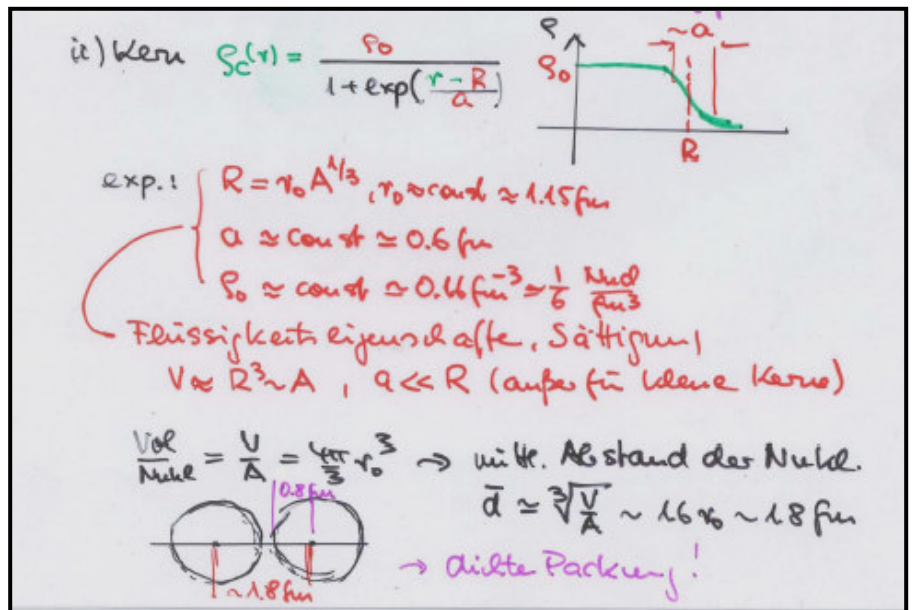 ii) Kern ρc(r) = ρ0 / (1 + exp((r - R)/a))
ρ
~a
ρ0
R
exp.: R = r0 A^1/3, r0 ≈ const ≃ 1.15 fm
a ≃ const ≃ 0.6 fm
ρ0 ≃ const ≃ 0.16 fm^-3 ≃ 1/6 Nukl/fm^3
Flüssigkeitseigenschaften, Sättigung
V ≈ R^3 ~ A, a << R (außer für kleine Kerne)
Vol/Nukl = V/A = 4π/3 r0^3 → mittl. Abstand der Nukl.
0.8 fm
d̄ ≃ ∛(V/A) ~ 1.6 r0 ~ 1.8 fm
~1.8 fm
→ dichte Packung!